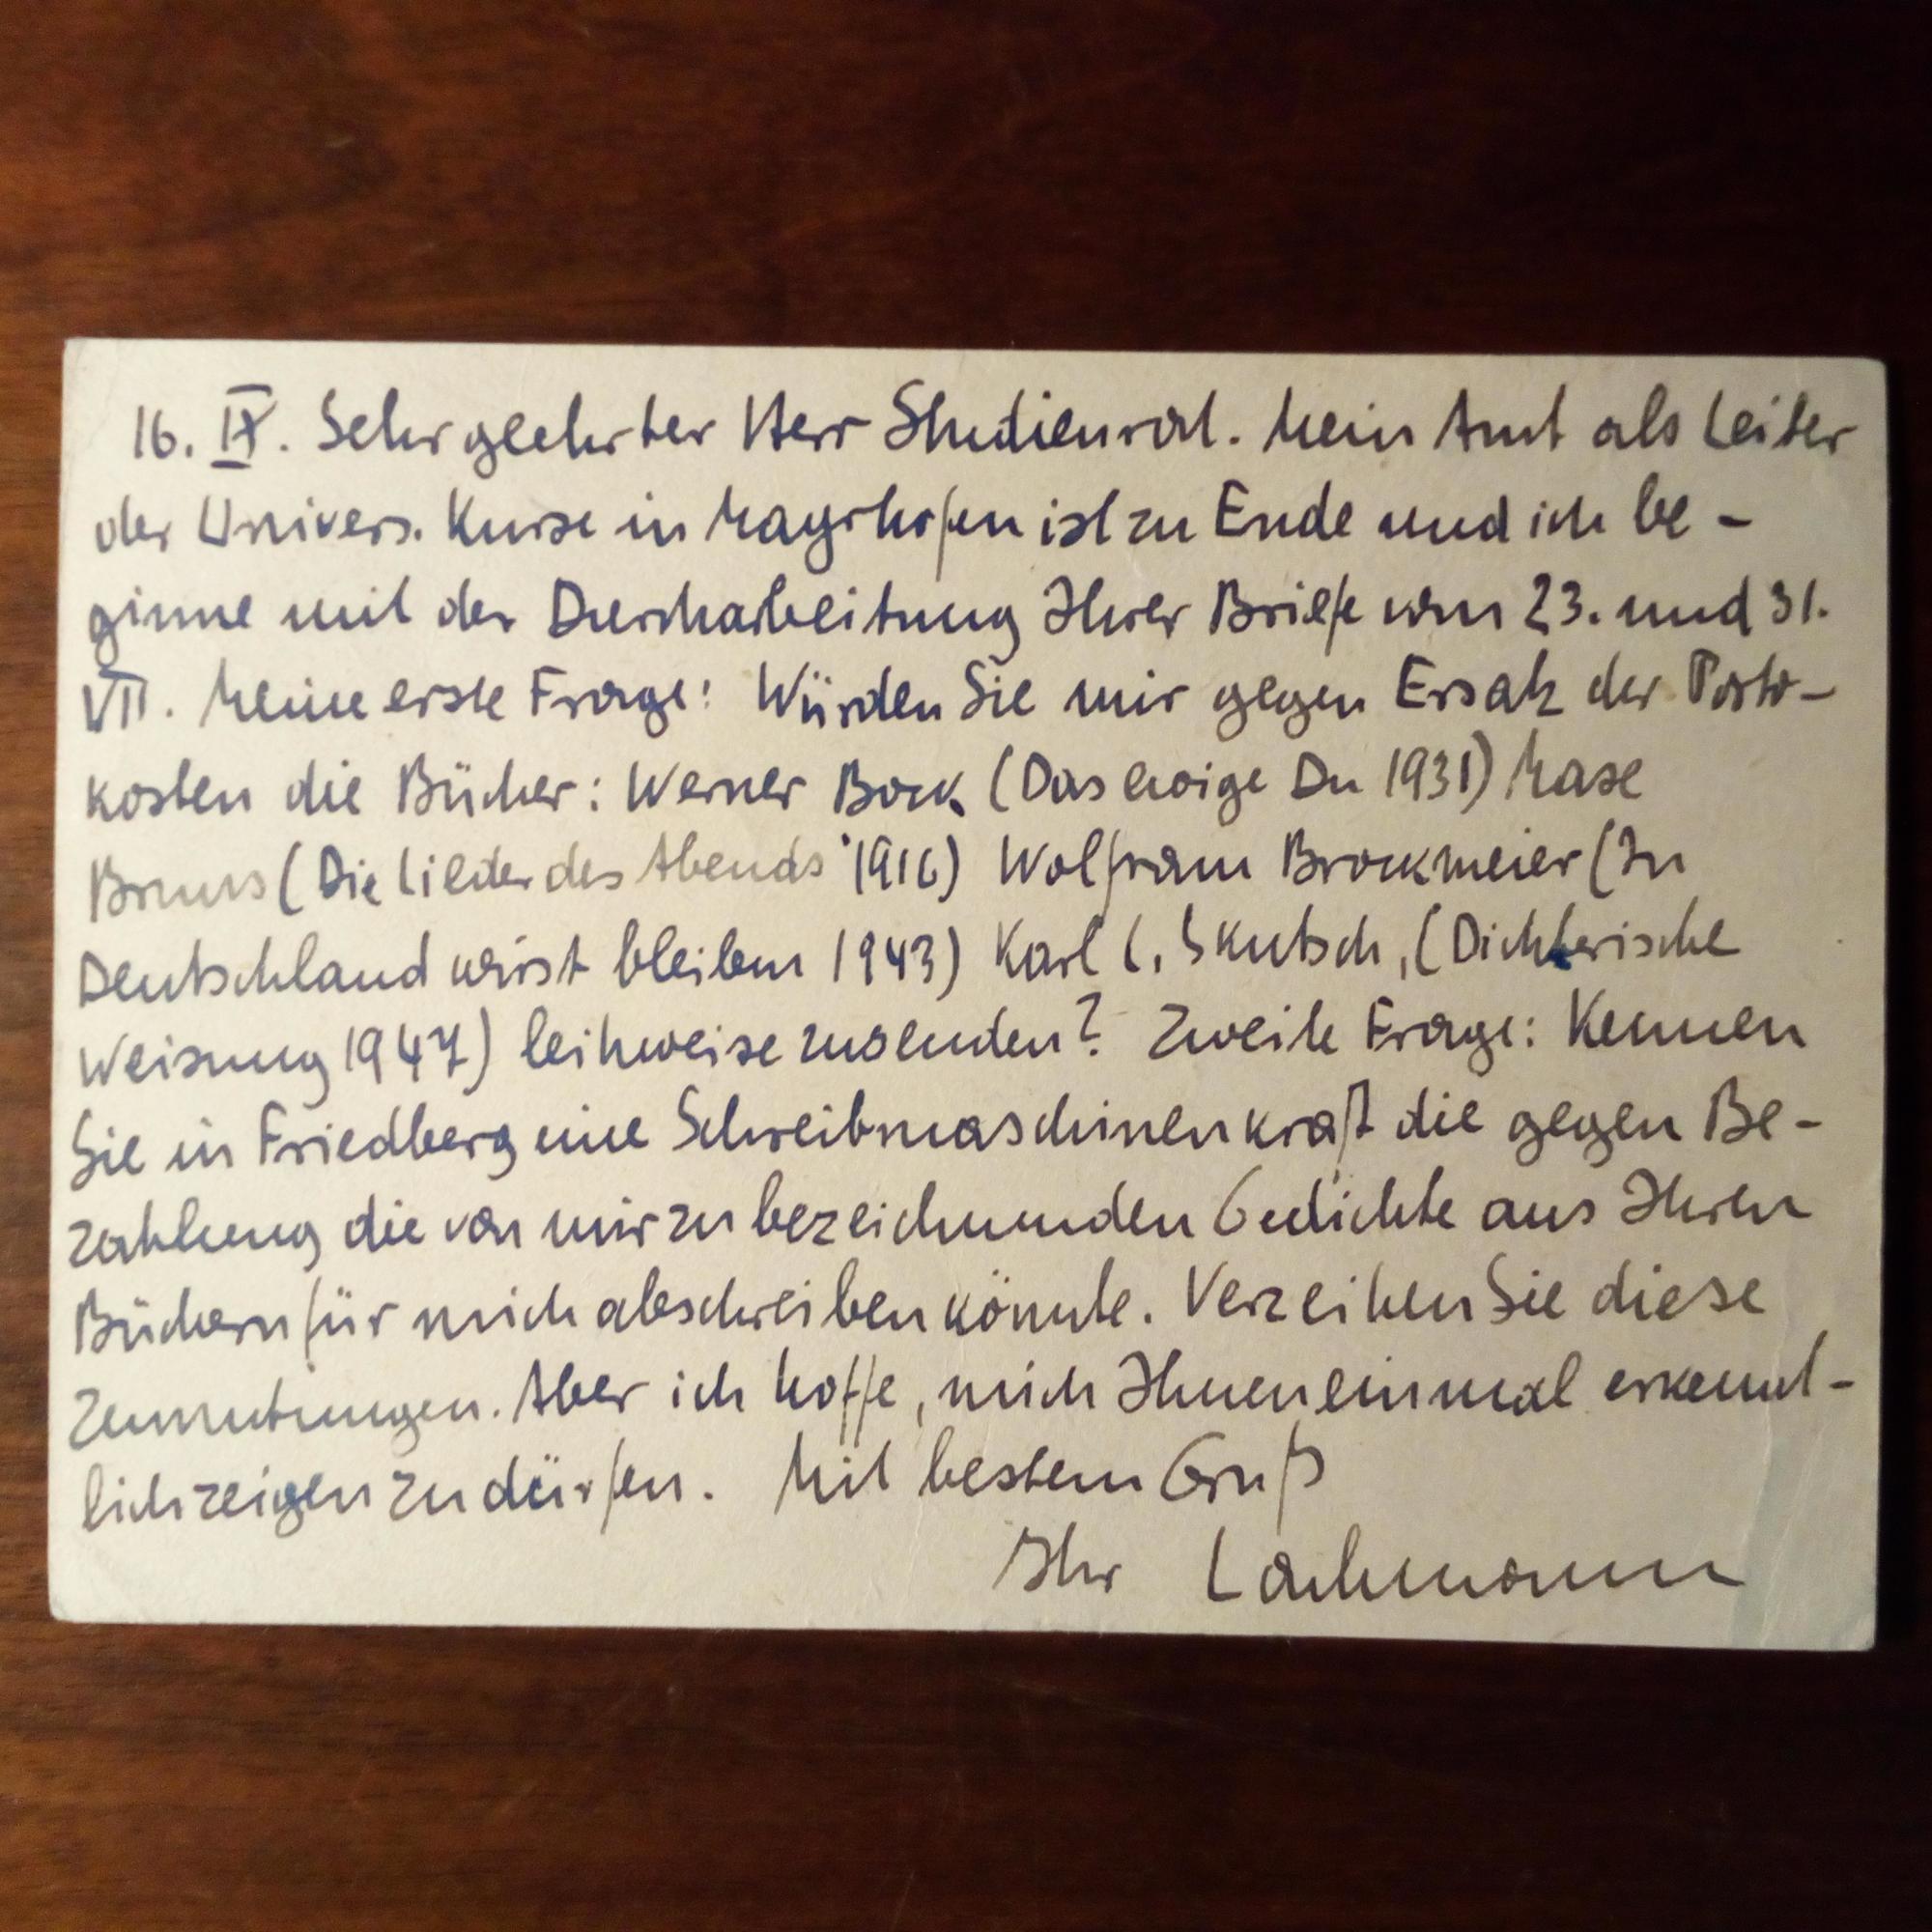 16. IX. Sehr geehrter Herr Studienrat. Mein Amt als Leiter
der Univers. Kurse in Mayrhofen ist zu Ende und ich be-
ginne mit der Durcharbeitung Ihrer Briefe vom 23. und 31.
VII. Meine erste Frage: Würden Sie mir gegen Ersatz der Porto-
kosten die Bücher: Werner Bock (Das ewige Du 1931) Maxe
Bruns (Die Lieder des Abends 1916) Wolfram Brockmeier (Du
Deutschland wirst bleiben 1943) Karl L. Skutsch, (Dichterische
Weisung 1947) leihweise zusenden? Zweite Frage: Kennen
Sie in Friedberg eine Schreibmaschinenkraft die gegen Be-
zahlung die von mir zu bezeichnenden Gedichte aus Ihren
Büchern für mich abschreiben könnte. Verzeihen Sie diese
Zumutungen. Aber ich hoffe, mich Ihnen einmal erkennt-
lich zeigen zu dürfen. Mit bestem Gruß
Ihr Lachmann